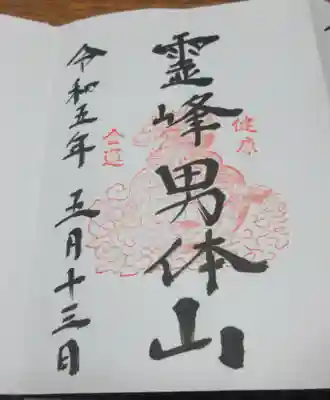 霊峰男体山
健康
令和五年 五月十三日